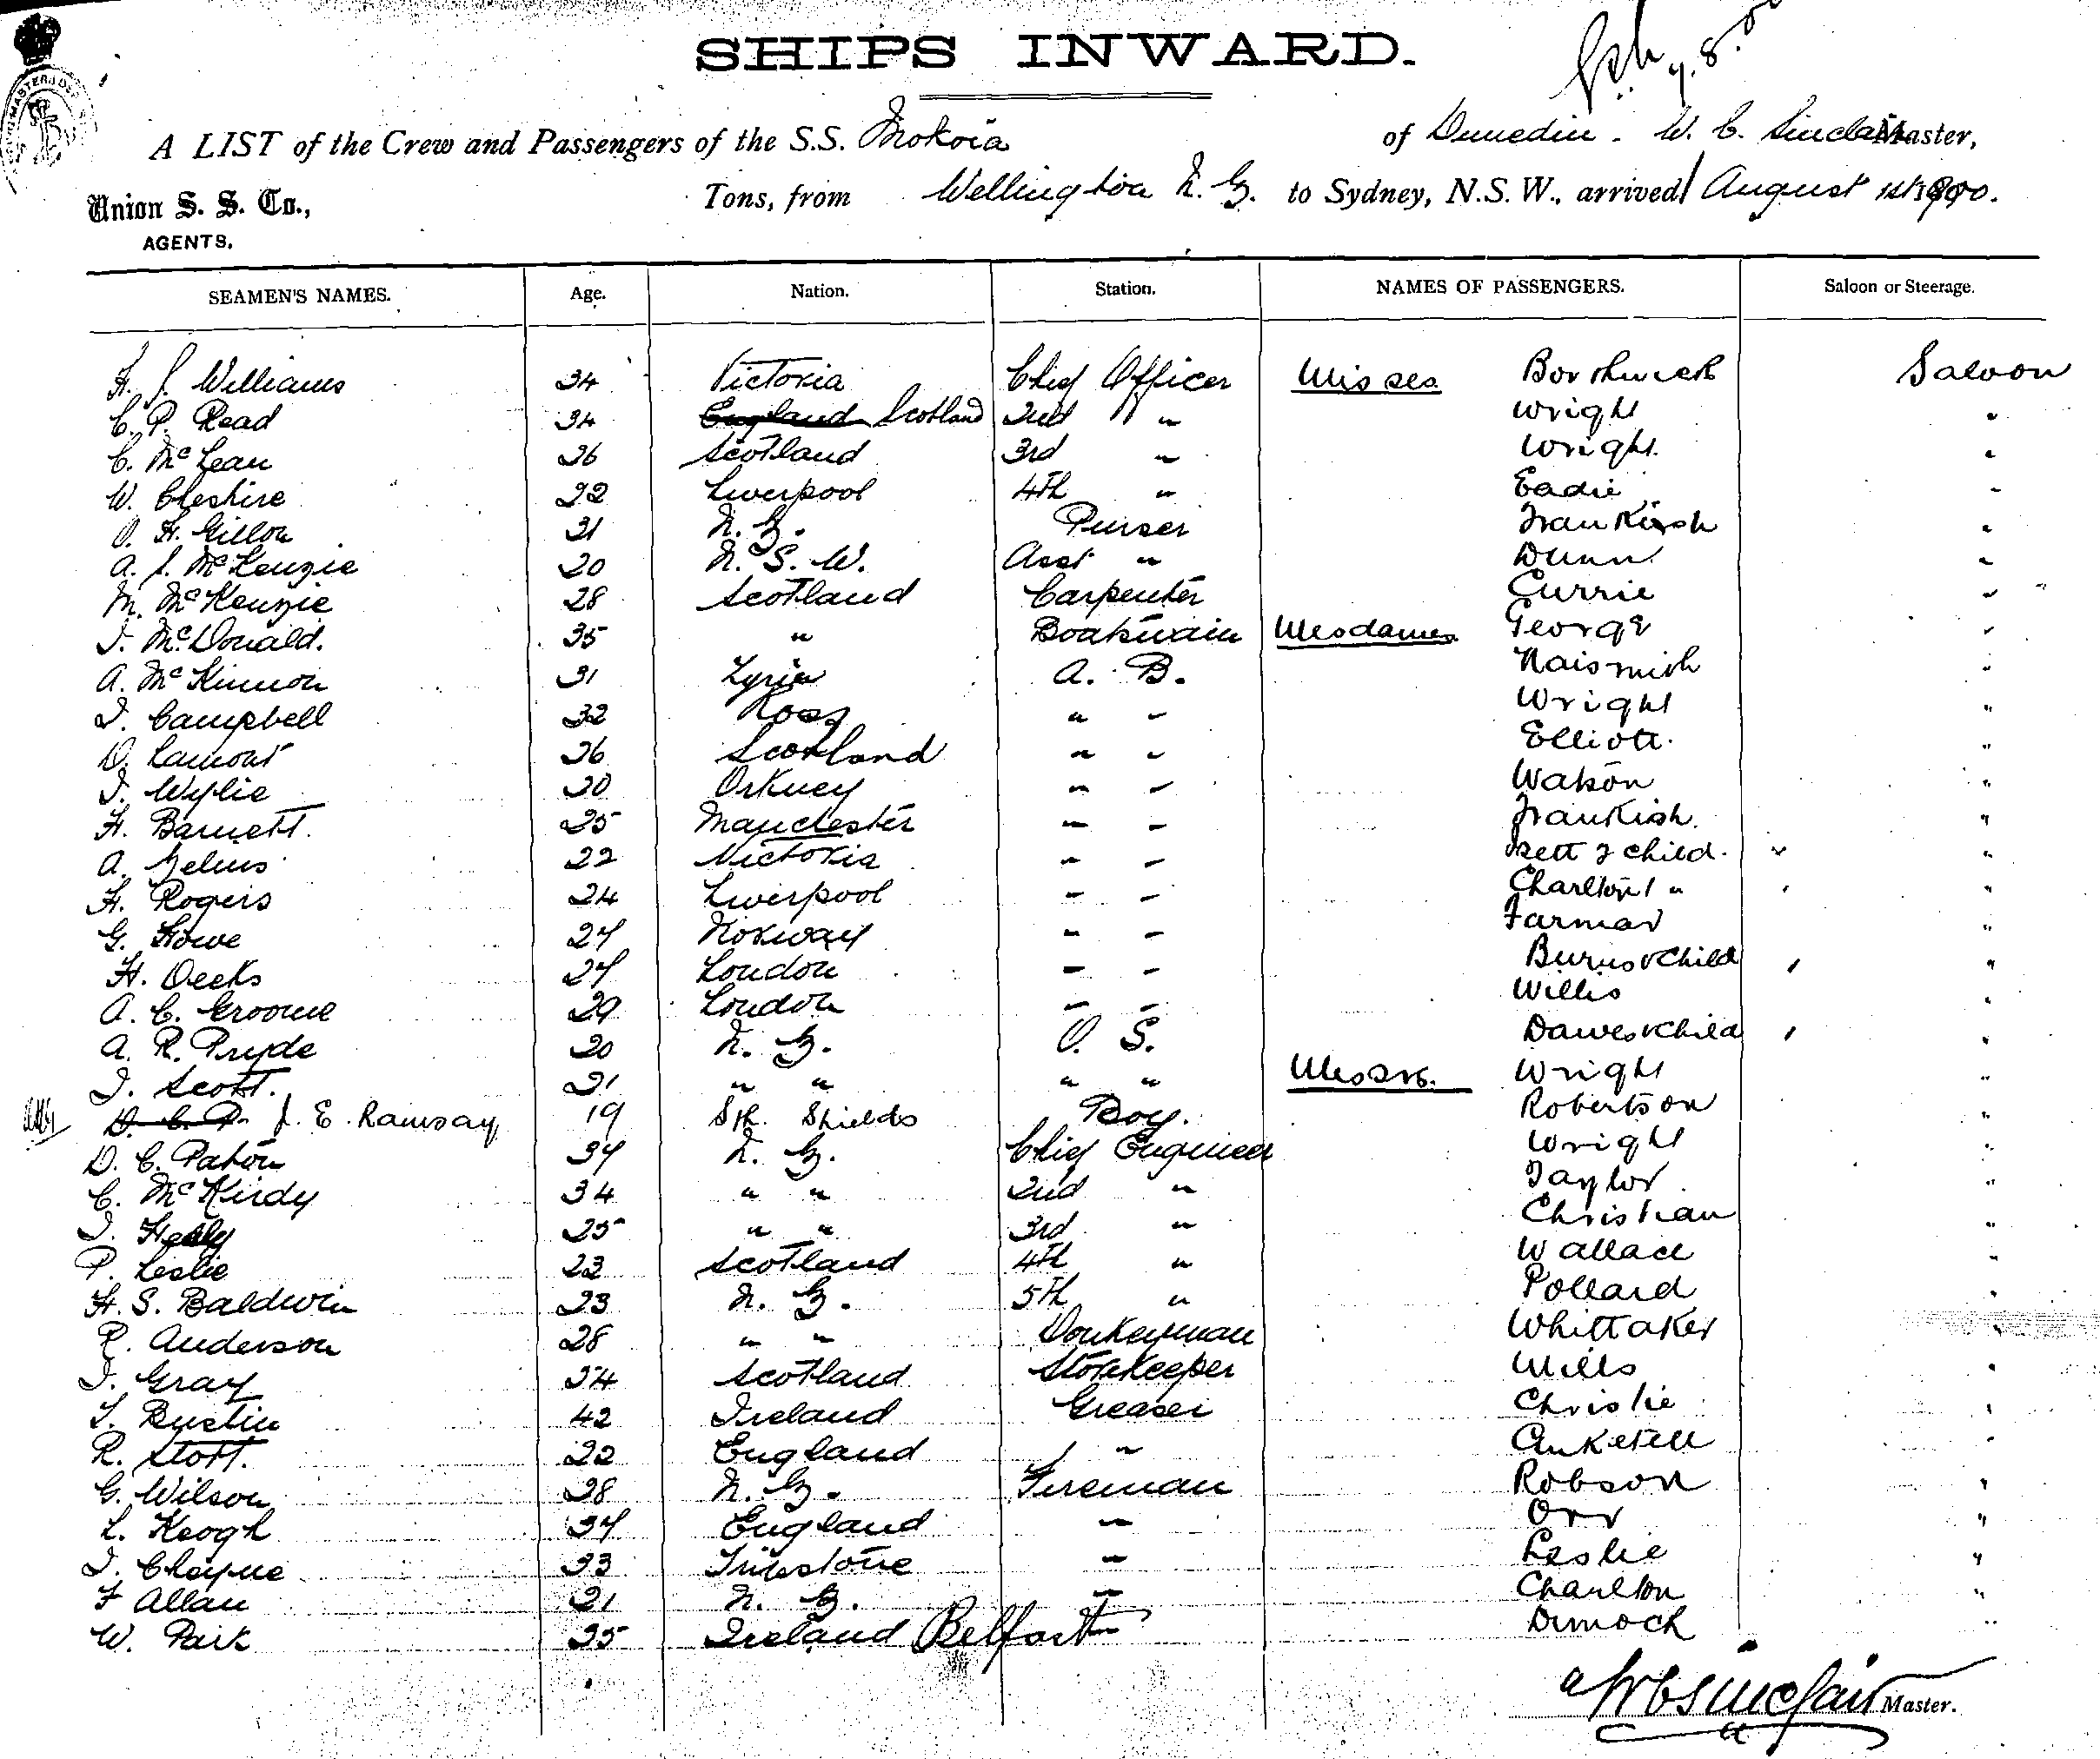 SHIPS INWARD.
A LIST of the Crew and Passengers of the S.S. Mokoia of Dunedin - W. C. Sinclair Master,
Union S. S. Co., AGENTS. Tons, from Wellington N. Z. to Sydney, N.S.W., arrived August 1st 1900.
SEAMEN'S NAMES. Age. Nation. Station. NAMES OF PASSENGERS. Saloon or Steerage.
Williams 34 Victoria Chief Officer Misses Borthwick Saloon
C. P. Read 34 England Scotland 2nd " Wright "
C. McLean 26 Scotland 3rd " Wright. "
W. Cheshire 22 Liverpool 4th " Eadie "
Gillon 31 N. Z. Purser Frankish "
A. J. McKenzie 20 N. S. W. Asst " Dunn "
M. McKenzie 28 Scotland Carpenter Currie "
J. McDonald. 35 " Boatswain Mesdames George "
A. McKinnon 31 A. B. Naismith "
J. Campbell 32 Ross " " Wright "
D. Lamont 26 Scotland " " Elliott. "
J. Wylie 20 Orkney " " Watson "
H. Barnett. 25 Manchester " " Frankish. "
A. 22 Victoria " " Izett & child. "
H. Rogers 24 Liverpool " " Charlton 1 " "
G. Howe 27 Norway " " Farmar "
H. Deeks 27 London " " Burns & Child "
A. C. Groome 29 London " " Willis "
A. R. Pryde 20 N. Z. O. S. Dawes & Child "
J. Scott. 21 " " " " Messrs. Wright "
D. C. P. J. E. Ramsay 19 Sth. Shields Boy. Robertson "
D. C. Paton 37 N. Z. Chief Engineer Wright "
C. McKirdy 34 " " 2nd " Taylor "
J. Healy 25 " " 3rd " Christian "
P. Leslie 23 Scotland 4th " Wallace "
H. S. Baldwin 23 N. Z. 5th " Pollard "
R. Anderson 28 " " Donkeyman Whittaker "
J. Gray 34 Scotland Storekeeper Mills "
T. Bustin 42 Ireland Greaser Christie "
R. Stott. 22 England " Anketell "
G. Wilson 28 N. Z. Fireman Robson "
L. Keogh 37 England " Orr "
J. Cheyne 33 " Leslie "
F Allan 21 N. Z. " Charlton "
W. Park 35 Ireland Belfast " Dimock "
W C Sinclair Master.